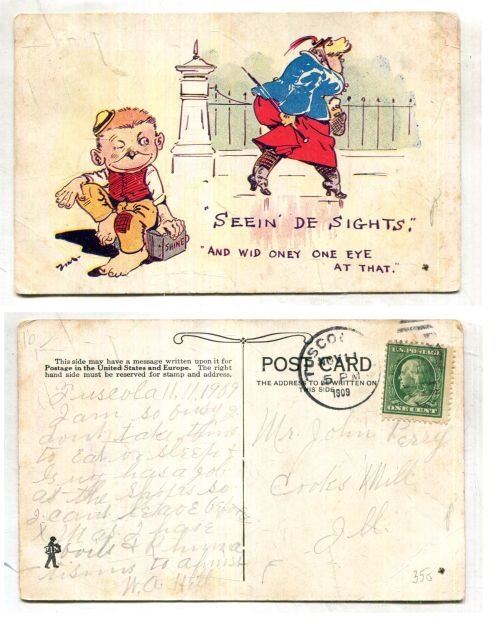 SHINE
"SEEIN' DE SIGHTS."
"AND WID ONEY ONE EYE
AT THAT."
This side may have a message written upon it for
Postage in the United States and Europe. The right
hand side must be reserved for stamp and address.
POST CARD
THE ADDRESS TO BE WRITTEN ON
THIS SIDE
TUSCOL
5 PM
1909
U.S. POSTAGE
ONE CENT
Tuscola 11/11 1909
I am so busy I
dont take time
to eat or sleep &
has a job
at the so
I cant leave before
X Mas. I have
boils & Rhuma
tisms to
W.A. Hill
Mr. John Perry
Cooks Mill
Ill.
350